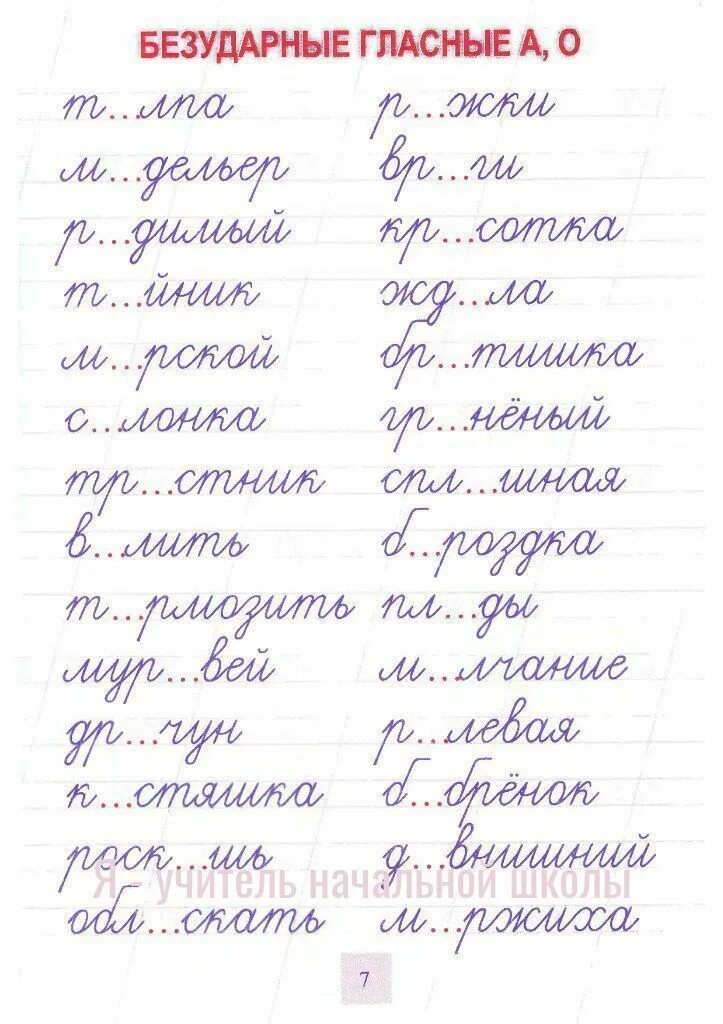 БЕЗУДАРНЫЕ ГЛАСНЫЕ А, О
т...лпа р...жки
м...дельер вр...ги
р...димый кр...сотка
т...йник жд...ла
м...рской бр...тишка
с...лонка гр...нёный
тр...стник спл...шная
в...лить б...роздка
т...рмозить пл...ды
мур...вей м...лчание
др...чун р...левая
к...стяшка б...брёнок
роск...шь д...внишний
Я - учитель начальной школы
обл...скать м...ржиха
7